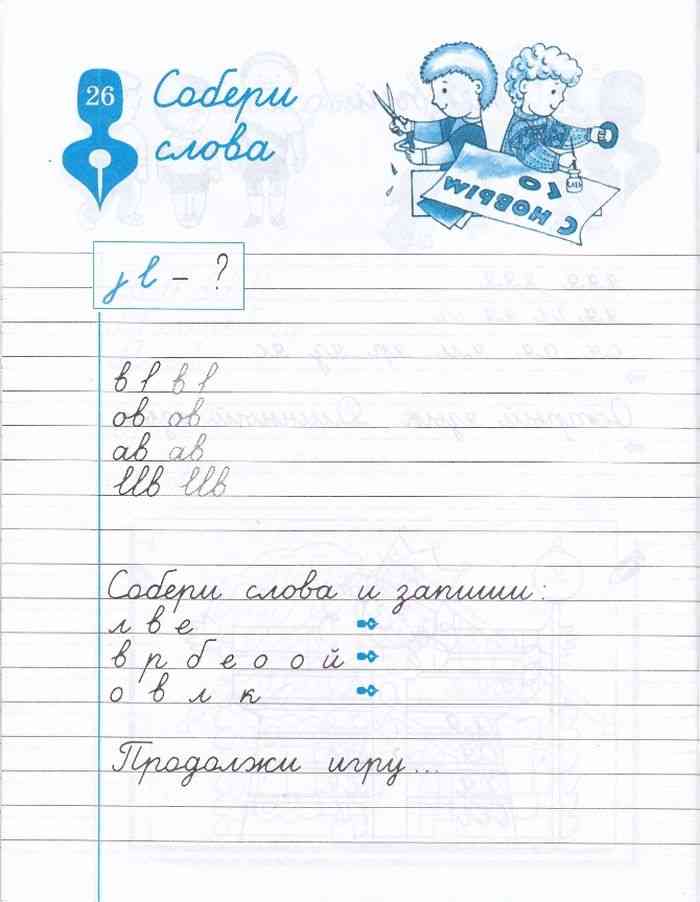 26
Собери
слова
С НОВЫМ
ГО
– ?
в в
ов ов
ав ав
в в
Собери слова и запиши:
л в е
в р б е о о й
о в л к
Продолжи игру...